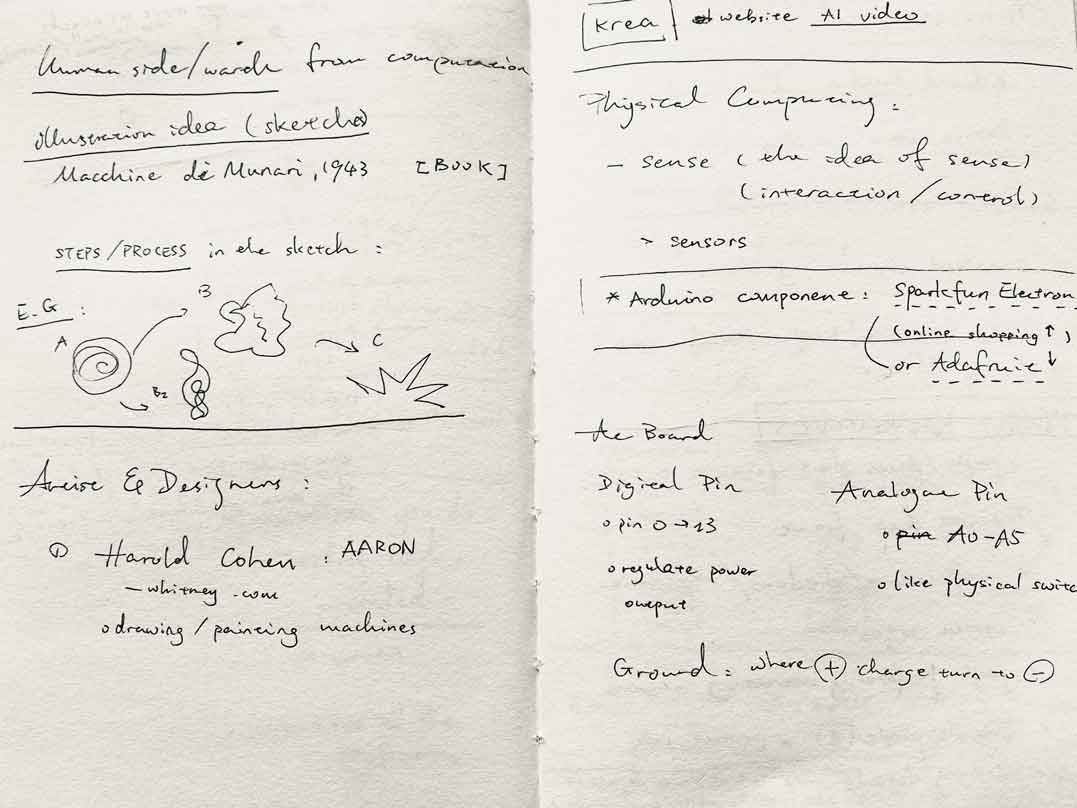 Human side/warmth from computation
illustration idea (sketches)
Macchine di Munari, 1943 [BOOK]
STEPS/PROCESS in the sketch :
E.G :
A
B
B2
C
Artist & Designers :
① Harold Cohen : AARON
- whitney.com
o drawing / painting machines
Krea
website AI video
Physical Computing :
- sense (the idea of sense)
(interaction / control)
> sensors
* Arduino component : Sparkfun Electron
(online shopping ↑)
or Adafruit ↓
Board
Digital Pin
o pin 0 → 13
o regulate power
output
Analogue Pin
o pin A0-A5
o like physical switc
Ground : where + charge turn to -